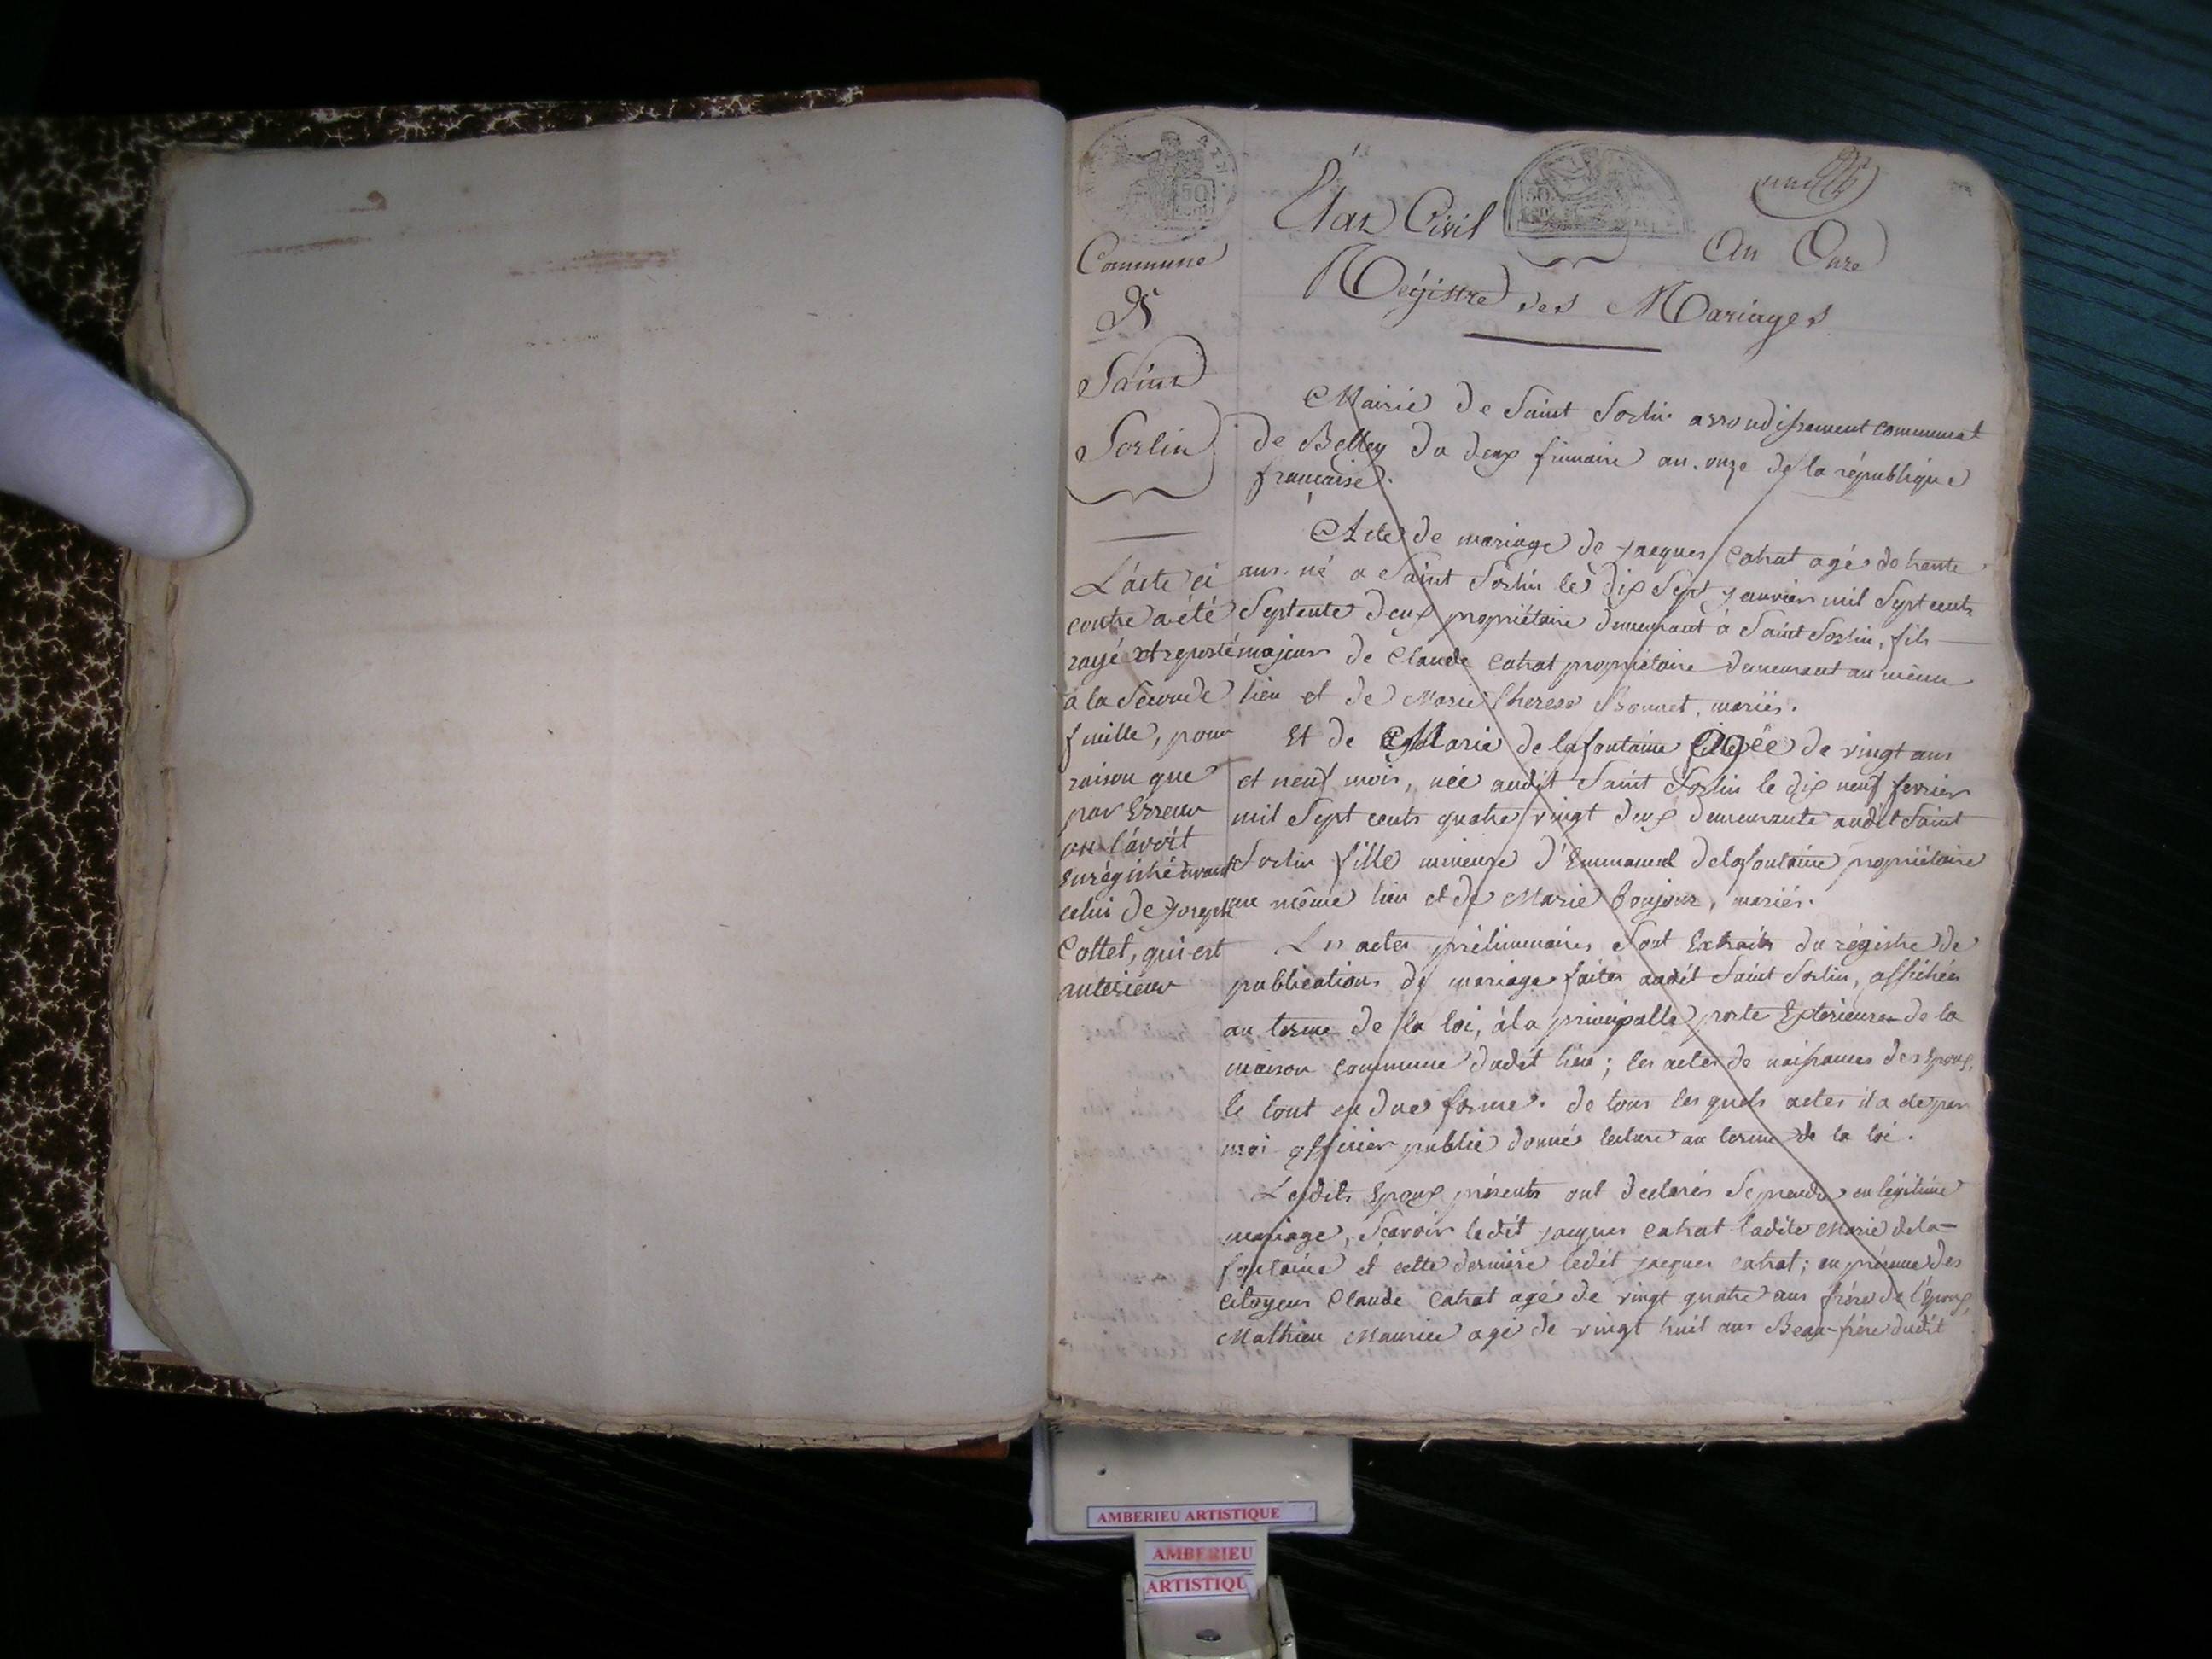 AIN
50
Etat Civil
An Onze
Régistre des Mariages
Commune
de
Saint
Sorlin
L'acte ci
contre a été
rayé et reporté
à la Seconde
feuille, pour
raison que
par Erreur
on l'avoit
Enrégistré avant
celui de Joseph
Cottet, qui est
anterieur
Mairie de Saint Sorlin arrondissement communal
de Belley du deux frimaire an onze de la république
française.
Acte de mariage de jacques Catrat agé de trente
ans né a Saint Sorlin le dix Sept janvier mil Sept cents
Septente deux propriétaire demeurant à Saint Sorlin, fils
majeur de Claude Catrat propriétaire demeurant au même
lieu et de Marie therese Bonnet, mariés.
Et de Marie delafontaine Agée de vingt ans
et neuf mois, née audit Saint Sorlin le dix neuf fevrier
mil Sept cents quatre vingt deux demeurante audit Saint
Sorlin fille mineure d'Emmanuel delafontaine propriétaire
au même lieu et de Marie bonjour, mariés.
Les actes préliminaires Sont Extraits du régistre de
publications de mariage faites audit Saint Sorlin, affichées
au terme de la loi, à la principalle porte Exterieure de la
maison commune dudit lieu; les actes de naissances des Epoux,
le tout en due forme. de tous les quels actes il a été par
moi officier public donné lecture au terme de la loi.
Lesdits Epoux présents ont declarés Se prendre en légitime
mariage, Scavoir ledit jacques Catrat ladite Marie dela-
fontaine et cette derniere ledit jacques catrat; en présence des
Citoyens Claude Catrat agé de vingt quatre ans frère de l'Epoux,
Mathieu Maurice agé de vingt huit ans Beau-frère dudit
AMBERIEU ARTISTIQUE
AMBERIEU
ARTISTIQU